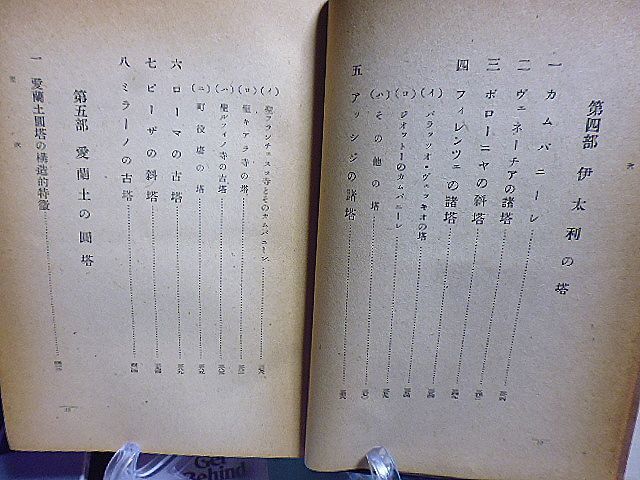 第四部 伊太利の塔
一 カムパニーレ
二 ヴェネーチアの諸塔
三 ボローニャの斜塔
四 フィレンツェの諸塔
(イ) パラッツオ・ヴェッキオの塔
(ロ) ジオットーのカムパニーレ
(ハ) その他の塔
五 アッシジの諸塔
(イ) 聖フランチェスコ寺とそのカムパニーレ
(ロ) 聖キアラ寺の塔
(ハ) 聖ルフィノ寺の古塔
(ニ) 町役場の塔
六 ローマの古塔
七 ピーザの斜塔
八 ミラーノの古塔
第五部 愛蘭土の圓塔
一 愛蘭土圓塔の構造的特徴
Get
Behind